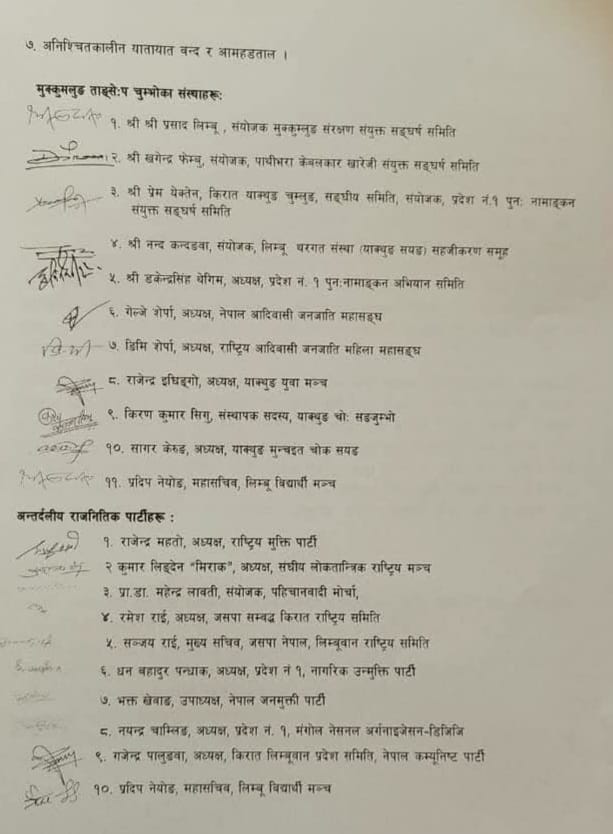 ७. अनिश्चितकालीन यातायात वन्द र आमहडताल ।
मुक्कुमलुङ ताङ्से:प चुम्भोका संस्थाहरू:
१. श्री श्री प्रसाद लिम्बू , संयोजक मुक्कुम्लुङ संरक्षण संयुक्त सङ्घर्ष समिति
२. श्री खगेन्द्र फेम्बु, संयोजक, पाथीभरा केबलकार खारेजी संयुक्त सङ्घर्ष समिति
३. श्री प्रेम येक्तेन, किरात याक्थुङ चुम्लुङ, सङ्घीय समिति, संयोजक, प्रदेश नं.१ पुन: नामाङ्कन
संयुक्त सङ्घर्ष समिति
४. श्री नन्द कन्दङवा, संयोजक, लिम्बू थरगत संस्था (याक्थुङ सयङ) सहजीकरण समूह
५. श्री डकेन्द्रसिंह थेगिम, अध्यक्ष, प्रदेश नं. १ पुन:नामाङ्कन अभियान समिति
६. गेल्जे शेर्पा, अध्यक्ष, नेपाल आदिवासी जनजाति महासङ्घ
७. डिमि शेर्पा, अध्यक्ष, राष्ट्रिय आदिवासी जनजाति महिला महासङ्घ
८. राजेन्द्र इघिङ्गो, अध्यक्ष, याक्थुङ युवा मञ्च
९. किरण कुमार सिगु, संस्थापक सदस्य, याक्थुङ चो: सङजुम्भो
१०. सागर केरुङ, अध्यक्ष, याक्थुङ मुन्चइत चोक सयङ
११. प्रदिप नेयोङ, महासचिव, लिम्बू विद्यार्थी मञ्च
अन्तर्दलीय राजनितिक पार्टीहरू :
१. राजेन्द्र महतो, अध्यक्ष, राष्ट्रिय मुक्ति पार्टी
२ कुमार लिङ्देन "मिराक", अध्यक्ष, संघीय लोकतान्त्रिक राष्ट्रिय मञ्च
३. प्रा.डा. महेन्द्र लावती, संयोजक, पहिचानवादी मोर्चा,
४. रमेश राई, अध्यक्ष, जसपा सम्वद्ध किरात राष्ट्रिय समिति
५. सञ्जय राई, मुख्य सचिव, जसपा नेपाल, लिम्बूवान राष्ट्रिय समिति
६. धन बहादुर पन्धाक, अध्यक्ष, प्रदेश नं १, नागरिक उन्मुक्ति पार्टी
७. भक्त खेवाङ, उपाध्यक्ष, नेपाल जनमुक्ती पार्टी
८. नयन्द्र चाम्लिङ, अध्यक्ष, प्रदेश नं. १, मंगोल नेसनल अर्गनाइजेसन-डिजिजि
९. गजेन्द्र पालुङवा, अध्यक्ष, किरात लिम्बूवान प्रदेश समिति, नेपाल कम्यूनिष्ट पार्टी
१०. प्रदिप नेयोङ, महासचिव, लिम्बू विद्यार्थी मञ्च